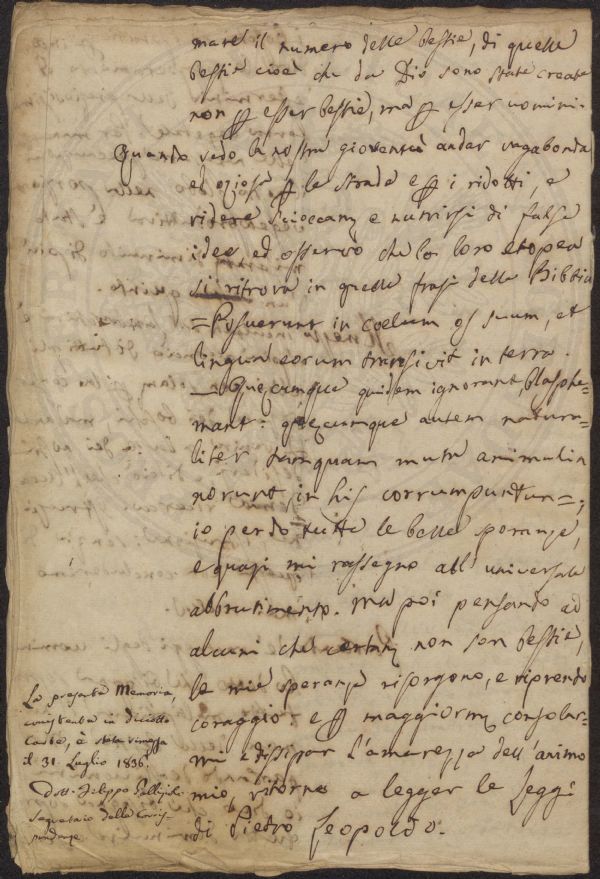 mare il numero delle bestie, di quelle
bestie cioè che da Dio sono state create
non per esser bestie, ma per esser uomini.
Quando vedo la nostra gioventù andar vagabonda
ed oziosa per le strade e per i ridotti, e
ridere scioccam. e nutrirsi di false
idee ed osservo che la loro etopea
si ritrova in quelle frasi della Bibbia
= Posuerunt in coelum os suum, et
lingua eorum transivit in terra.
— Quęcumque quidem ignorant, blasphe=
mant: quęcumque autem natura=
liter tamquam muta animalia
norunt, in his corrumpuntur =;
io perdo tutte le belle speranze,
e quasi mi rassegno all'universale
abbrutimento. Ma poi pensando ad
alcuni che certam. non son bestie,
le mie speranze risorgono, e riprendo
coraggio: e per maggiorm. consolar=
mi e dissipar l'amarezza dell'animo
mio, ritorno a legger le Leggi
di Pietro Leopoldo.
La presente Memoria,
consistente in diciotto
carte, è stata rimessa
il 31 Luglio 1836.
Dott. Filippo
Segretario delle Corris=
pondenze.